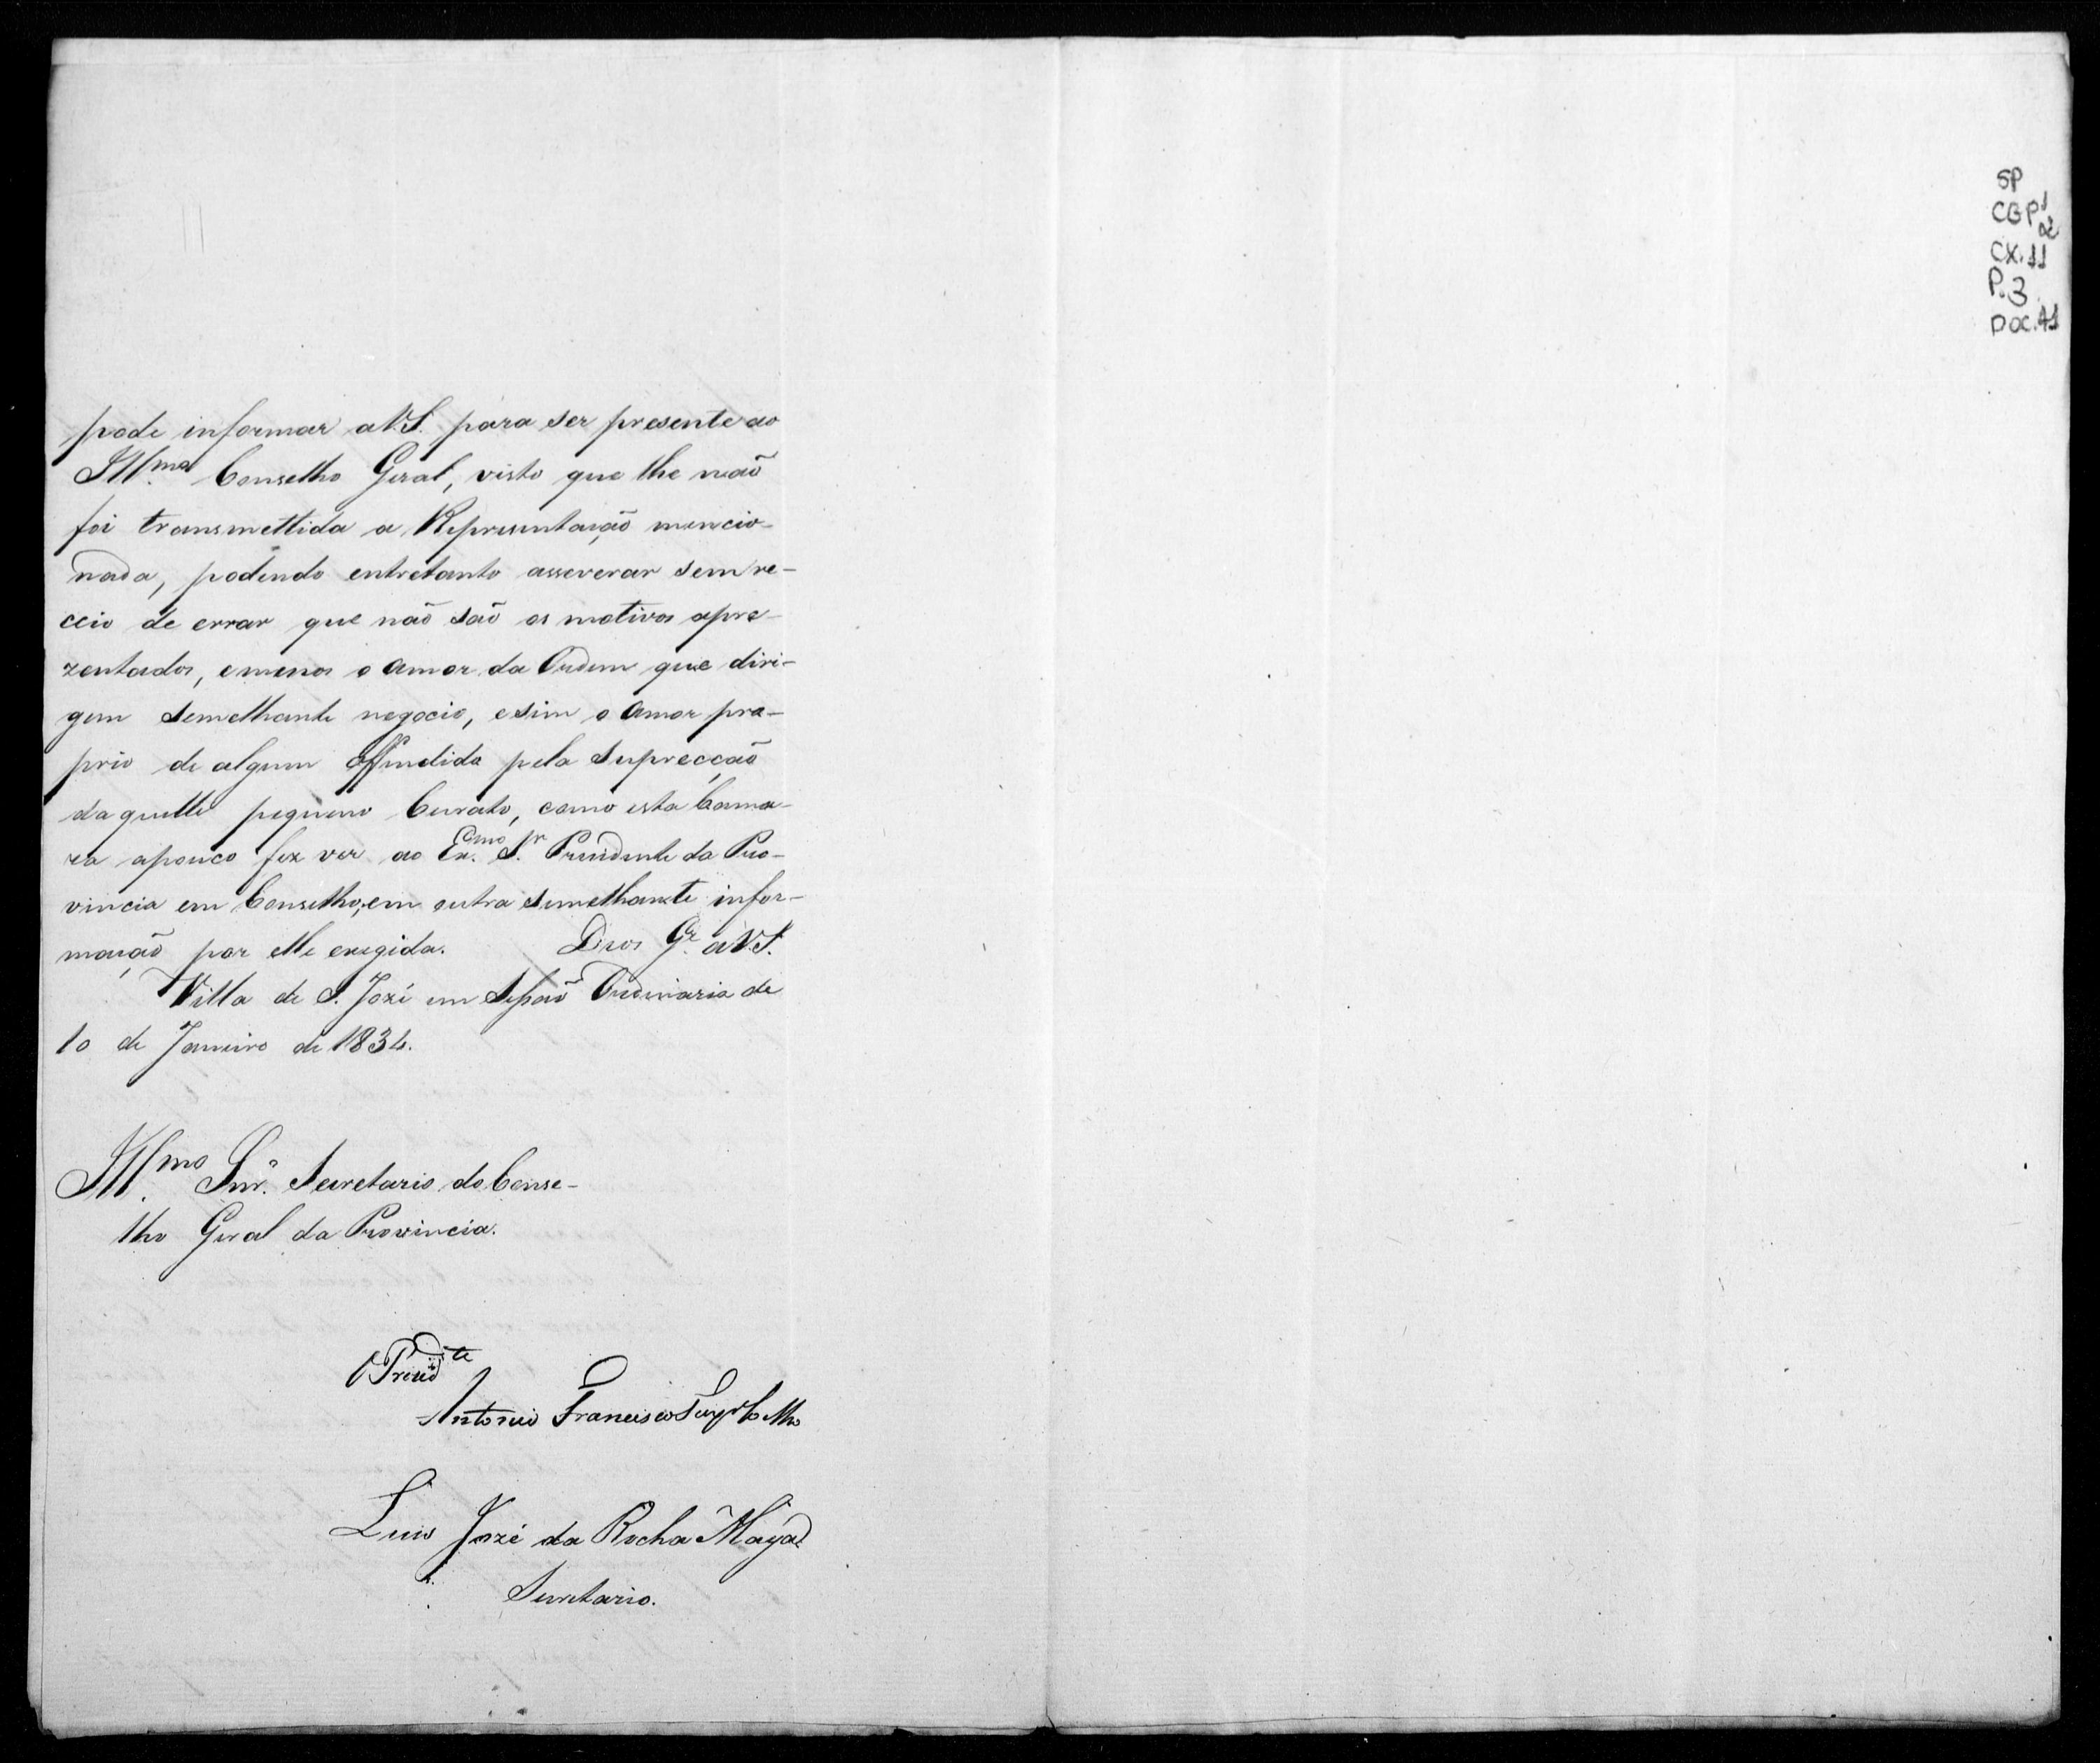 pode informar a V.S. para ser presente ao
Ill.mo Conselho Geral, visto que lhe naõ
foi transmettida a Representação mencio-
nada, podendo entretanto asseverar sem re-
ceio de errar que naõ saõ os motivos apre-
zentados, e menos o amor da Ordem que diri-
gem semelhante negocio, e sim o amor pro-
prio de algum offendido pela supreçcaõ
daquelle pequeno Curato, como esta Cama-
ra apouco fez ver ao Ex.mo Sr. Presidente da Pro-
vincia em Conselho, em outra semelhante infor-
mação por elle exegida. Deos G.e a V.S.
Villa de S. Jozé em Sessaõ Ordinaria de
10 de Janeiro de 1834.
Ill.mo Snr. Secretario do Conse-
lho Geral da Provincia.
O Presid.te
Antonio Francisco
Luis Jozé da Rocha Maya
Secretario.
SP
CGP1
2
CX.11
P.3
DOC.41